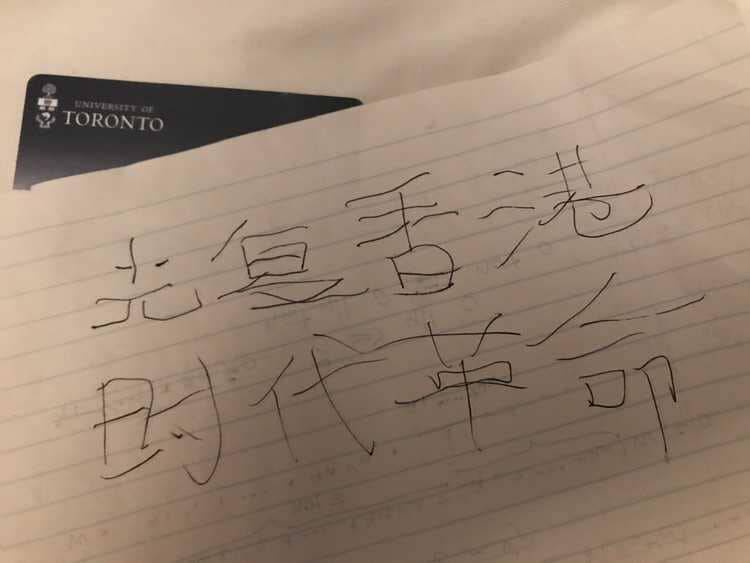 UNIVERSITY OF
TORONTO
光复香港
时代革命